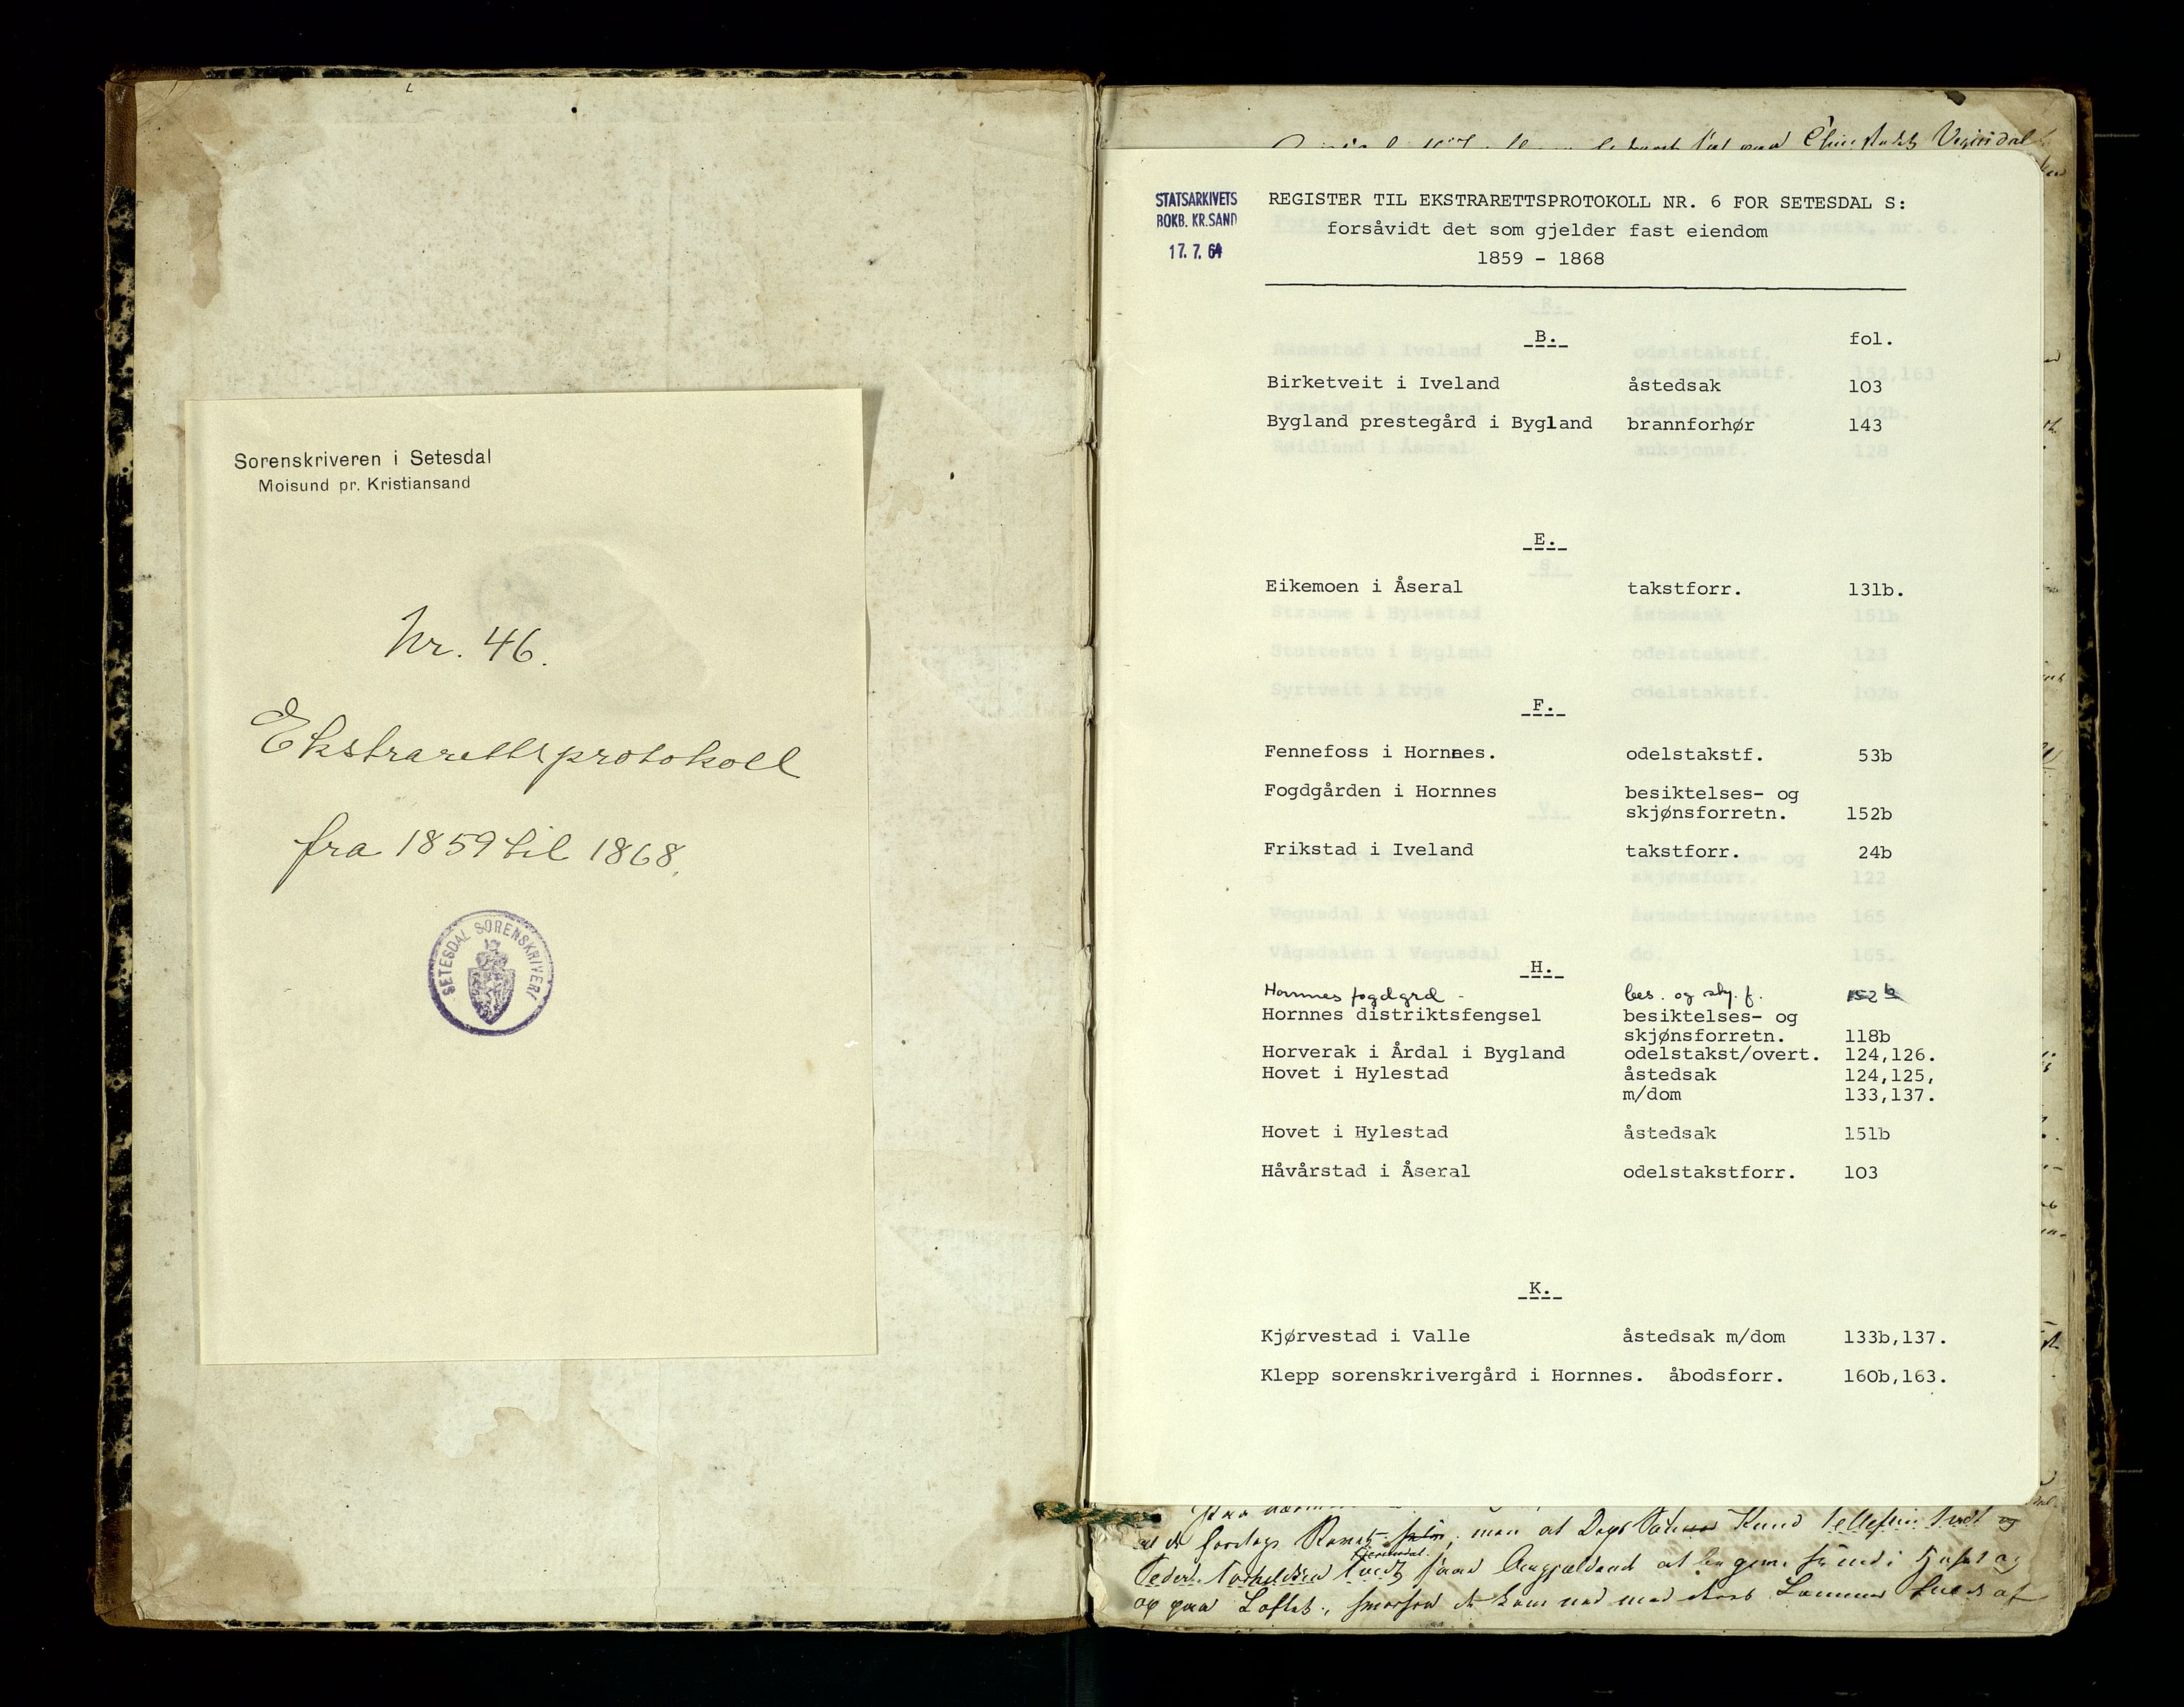 Sorenskriveren i Setesdal
Moisund pr. Kristiansand
Nr. 46.
Ekstrarettsprotokoll
fra 1859 til 1868.
SETESDAL SORENSKRIVERI
STATSARKIVETS
BOKB. KR.SAND
17. 7. 64
REGISTER TIL EKSTRARETTSPROTOKOLL NR. 6 FOR SETESDAL S:
forsåvidt det som gjelder fast eiendom
1859 - 1868
B. fol.
Birketveit i Iveland åstedsak 103
Bygland prestegård i Bygland brannforhør 143
E.
Eikemoen i Åseral takstforr. 131b.
F.
Fennefoss i Hornnes. odelstakstf. 53b
Fogdgården i Hornnes besiktelses- og
skjønsforretn. 152b
Frikstad i Iveland takstforr. 24b
H.
Hornnes fogdgrd - bes. og skj. f. 152b
Hornnes distriktsfengsel besiktelses- og
skjønsforretn. 118b
Horverak i Årdal i Bygland odelstakst/overt. 124,126.
Hovet i Hylestad åstedsak 124,125,
m/dom 133,137.
Hovet i Hylestad åstedsak 151b
Håvårstad i Åseral odelstakstforr. 103
K.
Kjørvestad i Valle åstedsak m/dom 133b,137.
Klepp sorenskrivergård i Hornnes. åbodsforr. 160b,163.